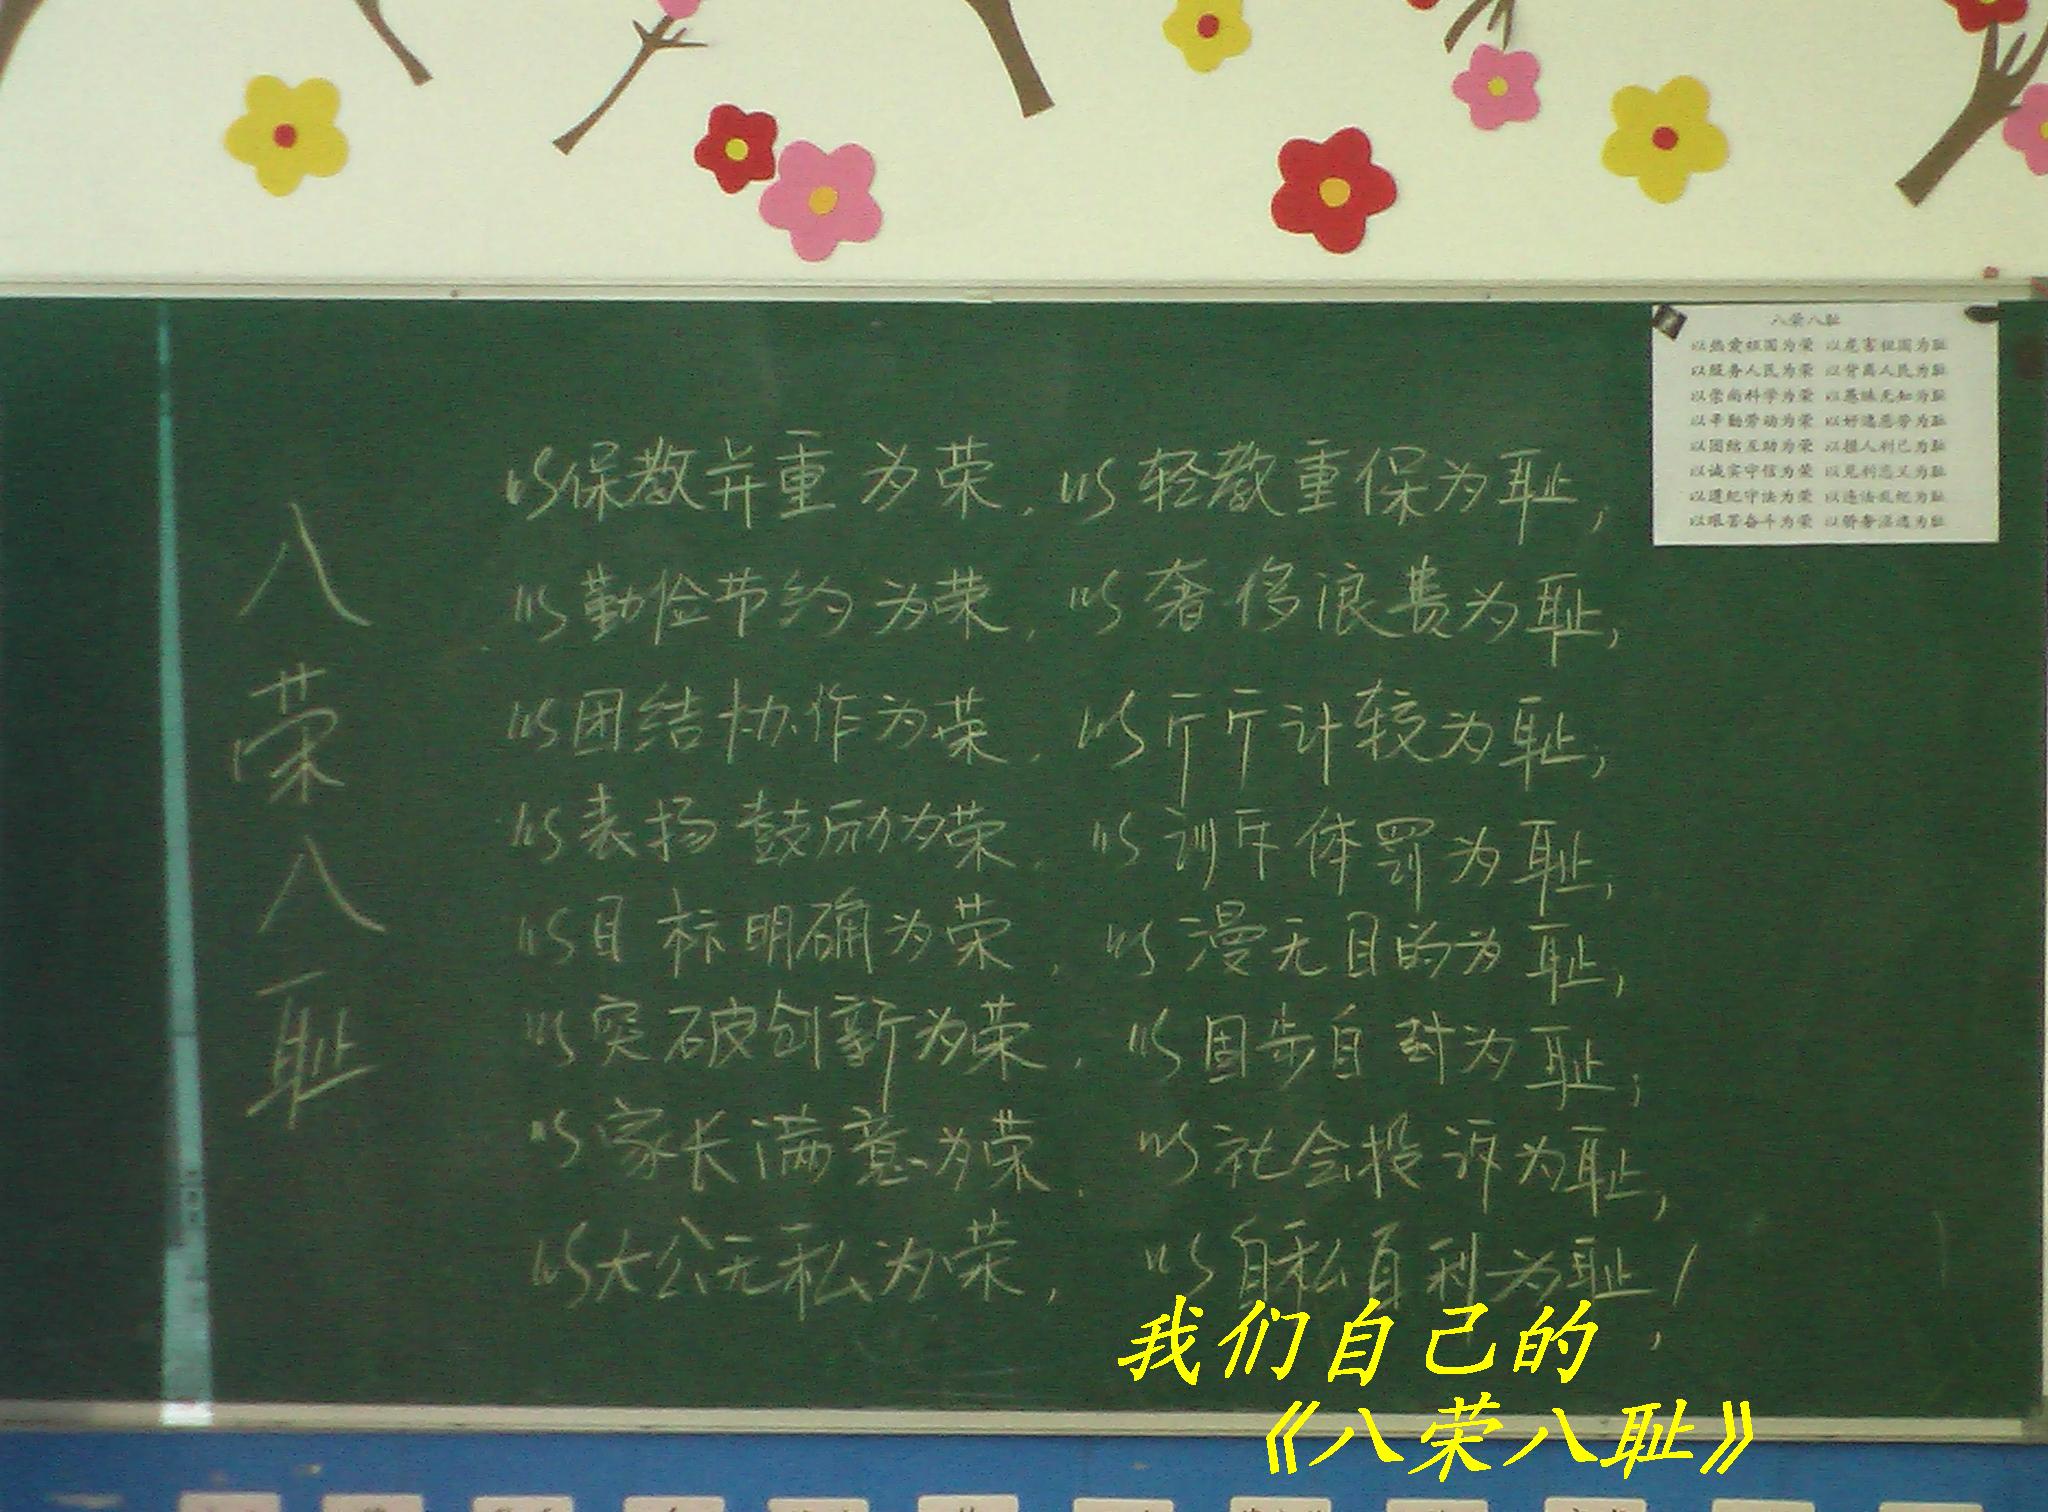 八荣八耻
以热爱祖国为荣 以危害祖国为耻
以服务人民为荣 以背离人民为耻
以崇尚科学为荣 以愚昧无知为耻
以辛勤劳动为荣 以好逸恶劳为耻
以团结互助为荣 以损人利己为耻
以诚实守信为荣 以见利忘义为耻
以遵纪守法为荣 以违法乱纪为耻
以艰苦奋斗为荣 以骄奢淫逸为耻
八荣八耻
以保教并重为荣，以轻教重保为耻；
以勤俭节约为荣，以奢侈浪费为耻；
以团结协作为荣，以斤斤计较为耻；
以表扬鼓励为荣，以训斥体罚为耻；
以目标明确为荣，以漫无目的为耻；
以突破创新为荣，以固步自封为耻；
以家长满意为荣，以社会投诉为耻；
以大公无私为荣，以自私自利为耻！
我们自己的
《八荣八耻》